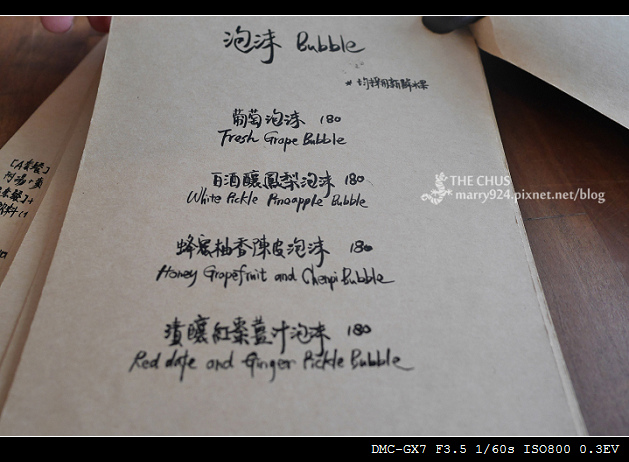 泡沫 Bubble
* 均採用新鮮水果
葡萄泡沫 180
Fresh Grape Bubble
白酒釀鳳梨泡沫 180
White Pickle Pineapple Bubble
蜂蜜柚香陳皮泡沫 180
Honey Grapefruit and Chenpi Bubble
漬釀紅棗薑汁泡沫 180
Red date and Ginger Pickle Bubble
THE CHUS
marry924.pixnet.net/blog
DMC-GX7 F3.5 1/60s ISO800 0.3EV